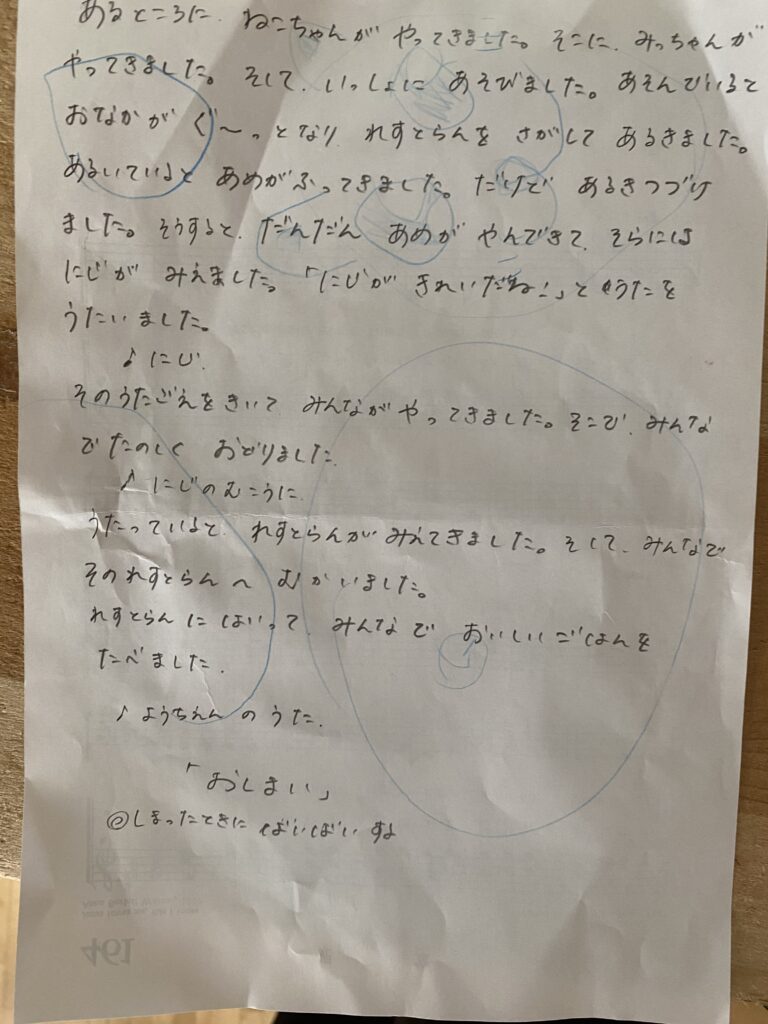 あるところに、ねこちゃんが やってきました。そこに、みっちゃんが
やってきました。そして、いっしょに あそびました。あそんでいると
おなかが ぐ〜っとなり れすとらんを さがして あるきました。
あるいていると あめがふってきました。だけど あるきつづけ
ました。そうすると、だんだん あめが やんできて、そらには
にじが みえました。「にじが きれいだね!」と うたを
うたいました。
♪にじ、
そのうたごえをきいて みんながやってきました。そこで、みんな
でたのしく おどりました、
♪にじのむこうに、
うたっていると、れすとらんがみえてきました。そして、みんなで
そのれすとらんへ むかいました。
れすとらんにはいって、みんなで おいしいごはんを
たべました、
♪ようちえんのうた、
「おしまい」
◎しまったときに ばいばいすよ
461